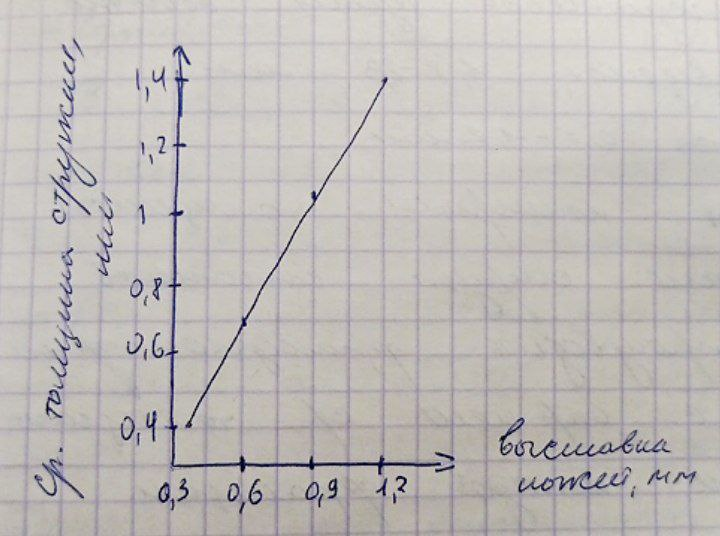 Ср. толщина стружки,
мм
1,4
1,2
1
0,8
0,6
0,4
0,3 0,6 0,9 1,2
выставка
ножей, мм